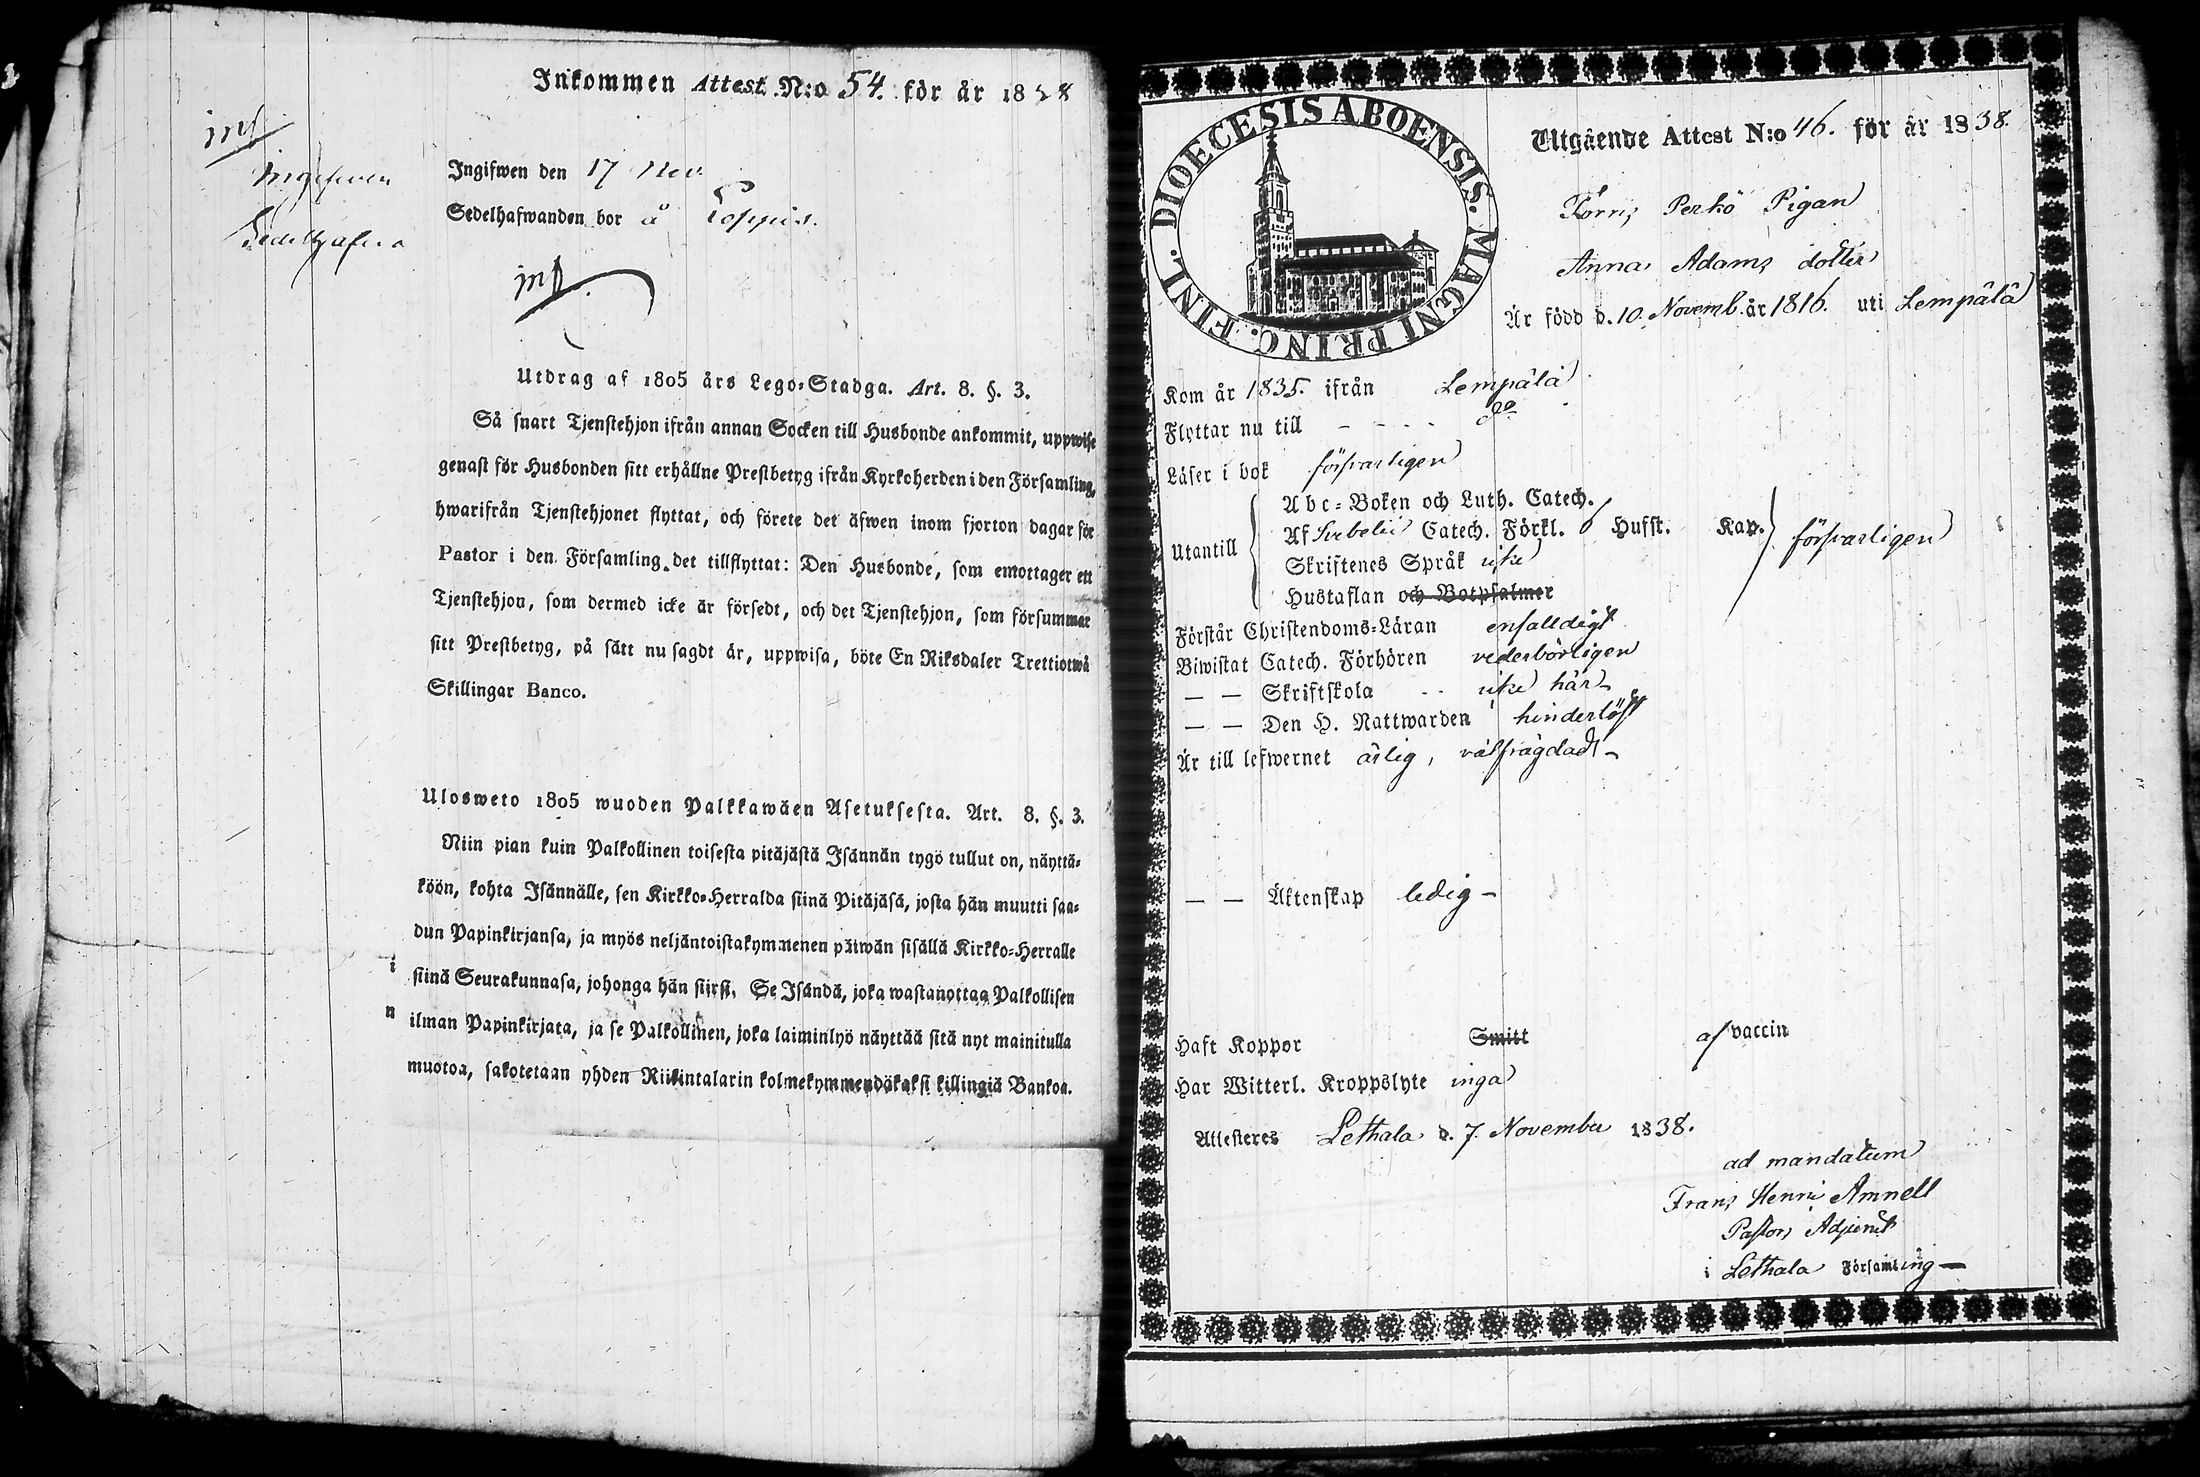 Inkommen Attest N:o 54. för år 1838
inf.
Ingifwen
Sedelhafva
Ingifwen den 17 Nov.
Sedelhafwanden bor å Loppis.
inf.
Utdrag af 1805 års Lego-Stadga. Art. 8. §. 3.
Så snart Tjenstehjon ifrån annan Socken till Husbonde ankommit, uppwise
genast för Husbonden sitt erhållne Prestbetyg ifrån Kyrkoherden i den Församling,
hwarifrån Tjenstehjonet flyttat, och förete det äfwen inom fjorton dagar för
Pastor i den Församling det tillflyttat: Den Husbonde, som emottager ett
Tjenstehjon, som dermed icke är försedt, och det Tjenstehjon, som försummar
sitt Prestbetyg, på sätt nu sagdt är, uppwisa, böte En Riksdaler Trettiotwå
Skillingar Banco.
Ulosweto 1805 wuoden Palkkawäen Asetuksesta. Art. 8. §. 3.
Niin pian kuin Palkollinen toisesta pitäjästä Isännän tygö tullut on, näyttä-
köön, kohta Isännälle, sen Kirkko-Herralda siinä Pitäjäsä, josta hän muutti saa-
dun Papinkirjansa, ja myös neljäntoistakymmenen päiwän sisällä Kirkko-Herralle
i siinä Seurakunnasa, johonga hän siirsi. Se Isändä, joka wastanottaa Palkollisen
n ilman Papinkirjata, ja se Palkollinen, joka laiminlyö näyttää sitä nyt mainitulla
muotoa, sakotetaan yhden Riikintalarin kolmekymmendäkaksi killingiä Bankoa.
DIOECESIS ABOENSIS. MAGNI PRINC. FINL.
Utgående Attest N:o 46. för år 1838.
Torris Perkö Pigan
Anna Adams dotter
Är född d. 10. Novemb. år 1816. uti Lempälä
Kom år 1835. ifrån Lempälä
Flyttar nu till - - - - do
Läser i bok försvarligen
Utantill
Abc-Boken och Luth. Catech.
Af Svebelii Catech. Förkl. 0 Hufst. Kap. försvarligen
Skriftenes Språk icke
Hustaflan och Botpsalmer
Förstår Christendoms-Läran enfalldigt
Biwistat Catech. Förhören vederbörligen
— — Skriftskola - - icke här
— — Den H. Nattwarden hinderlöst
Är till lefwernet ärlig, välfrägdad -
— — Äktenskap ledig -
Haft Koppor Smitt af vaccin
Har Witterl. Kroppslyte inga
Attesteres Lethala d. 7. November 1838.
ad mandatum
Frans Henric Amnell
Pastors Adjunct
i Lethala Församling —